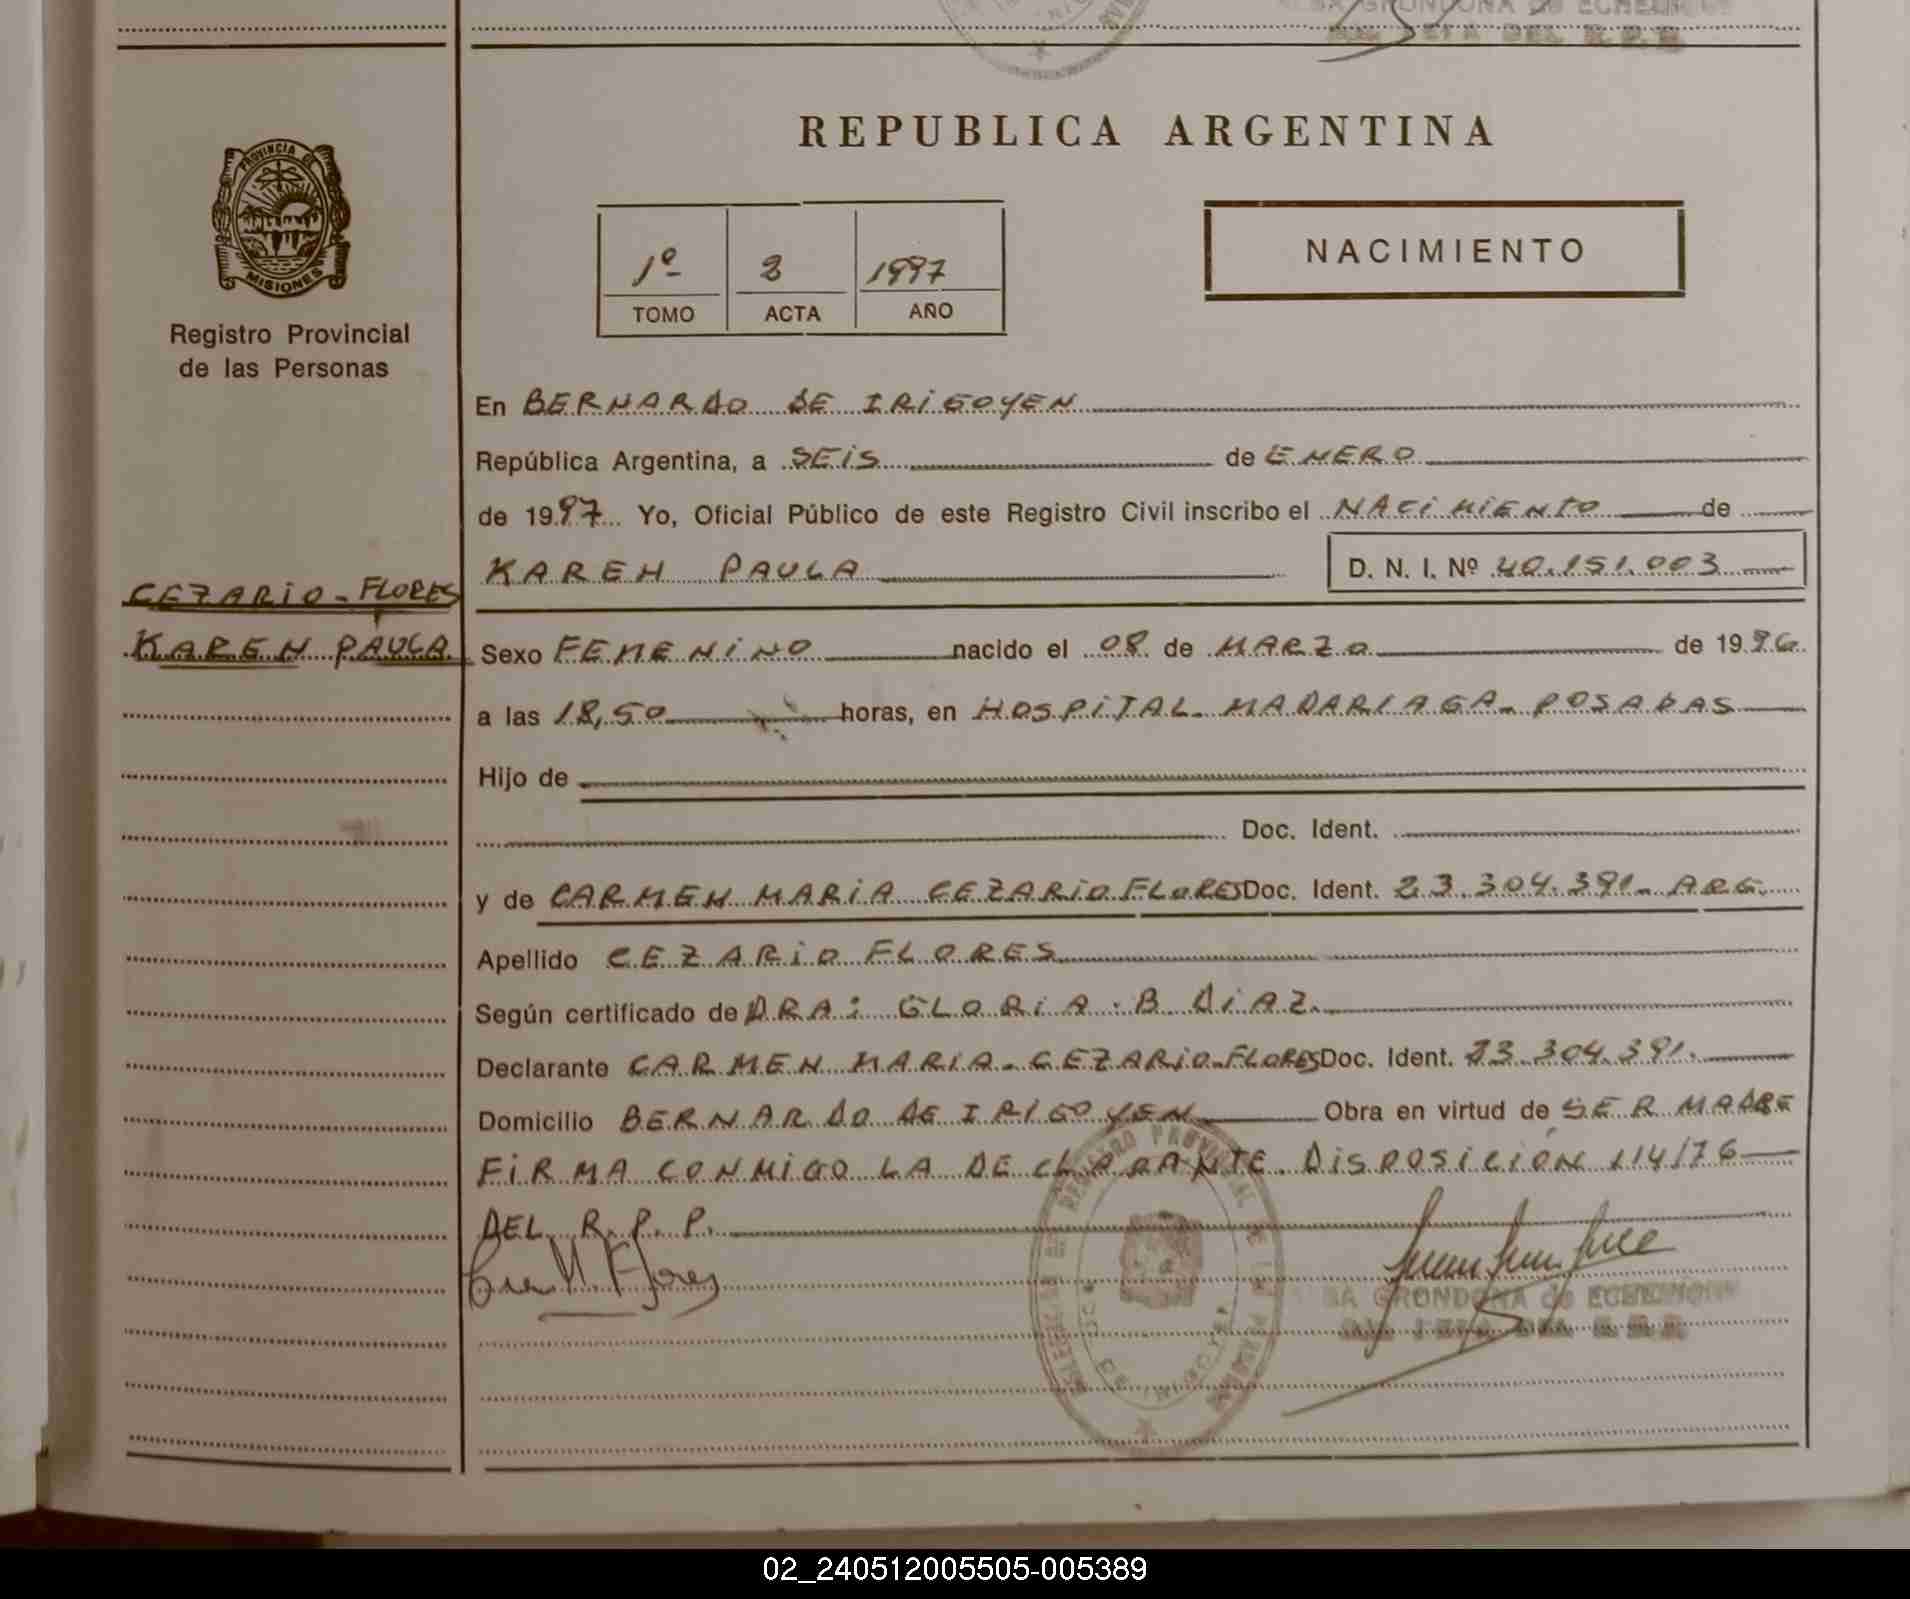 GRONDONA de ECHE
PROVINCIA DE
MISIONES
Registro Provincial
de las Personas
REPUBLICA ARGENTINA
1º 2 1997
TOMO ACTA AÑO
NACIMIENTO
En BERNARDO DE IRIGOYEN
República Argentina, a SEIS de ENERO
de 1997 Yo, Oficial Público de este Registro Civil inscribo el NACIMIENTO de
KAREN PAULA D. N. I. Nº 40.151.003
CEZARIO-FLORES
KAREN PAULA
Sexo FEMENINO nacido el 08 de MARZO de 1996
a las 18,50 horas, en HOSPITAL MADARIAGA- POSADAS
Hijo de
Doc. Ident.
y de CARMEN MARIA CEZARIO FLORES Doc. Ident. 23.304.391- ARG.
Apellido CEZARIO FLORES
Según certificado de DRA: GLORIA B. DIAZ.
Declarante CARMEN MARIA-CEZARIO-FLORES Doc. Ident. 23.304.391.
Domicilio BERNARDO DE IRIGOYEN Obra en virtud de SER MADRE
FIRMA CONMIGO LA DECLARANTE. DISPOSICIÓN 114/76
DEL R.P.P.
M. Flores
GRONDONA de
02_240512005505-005389